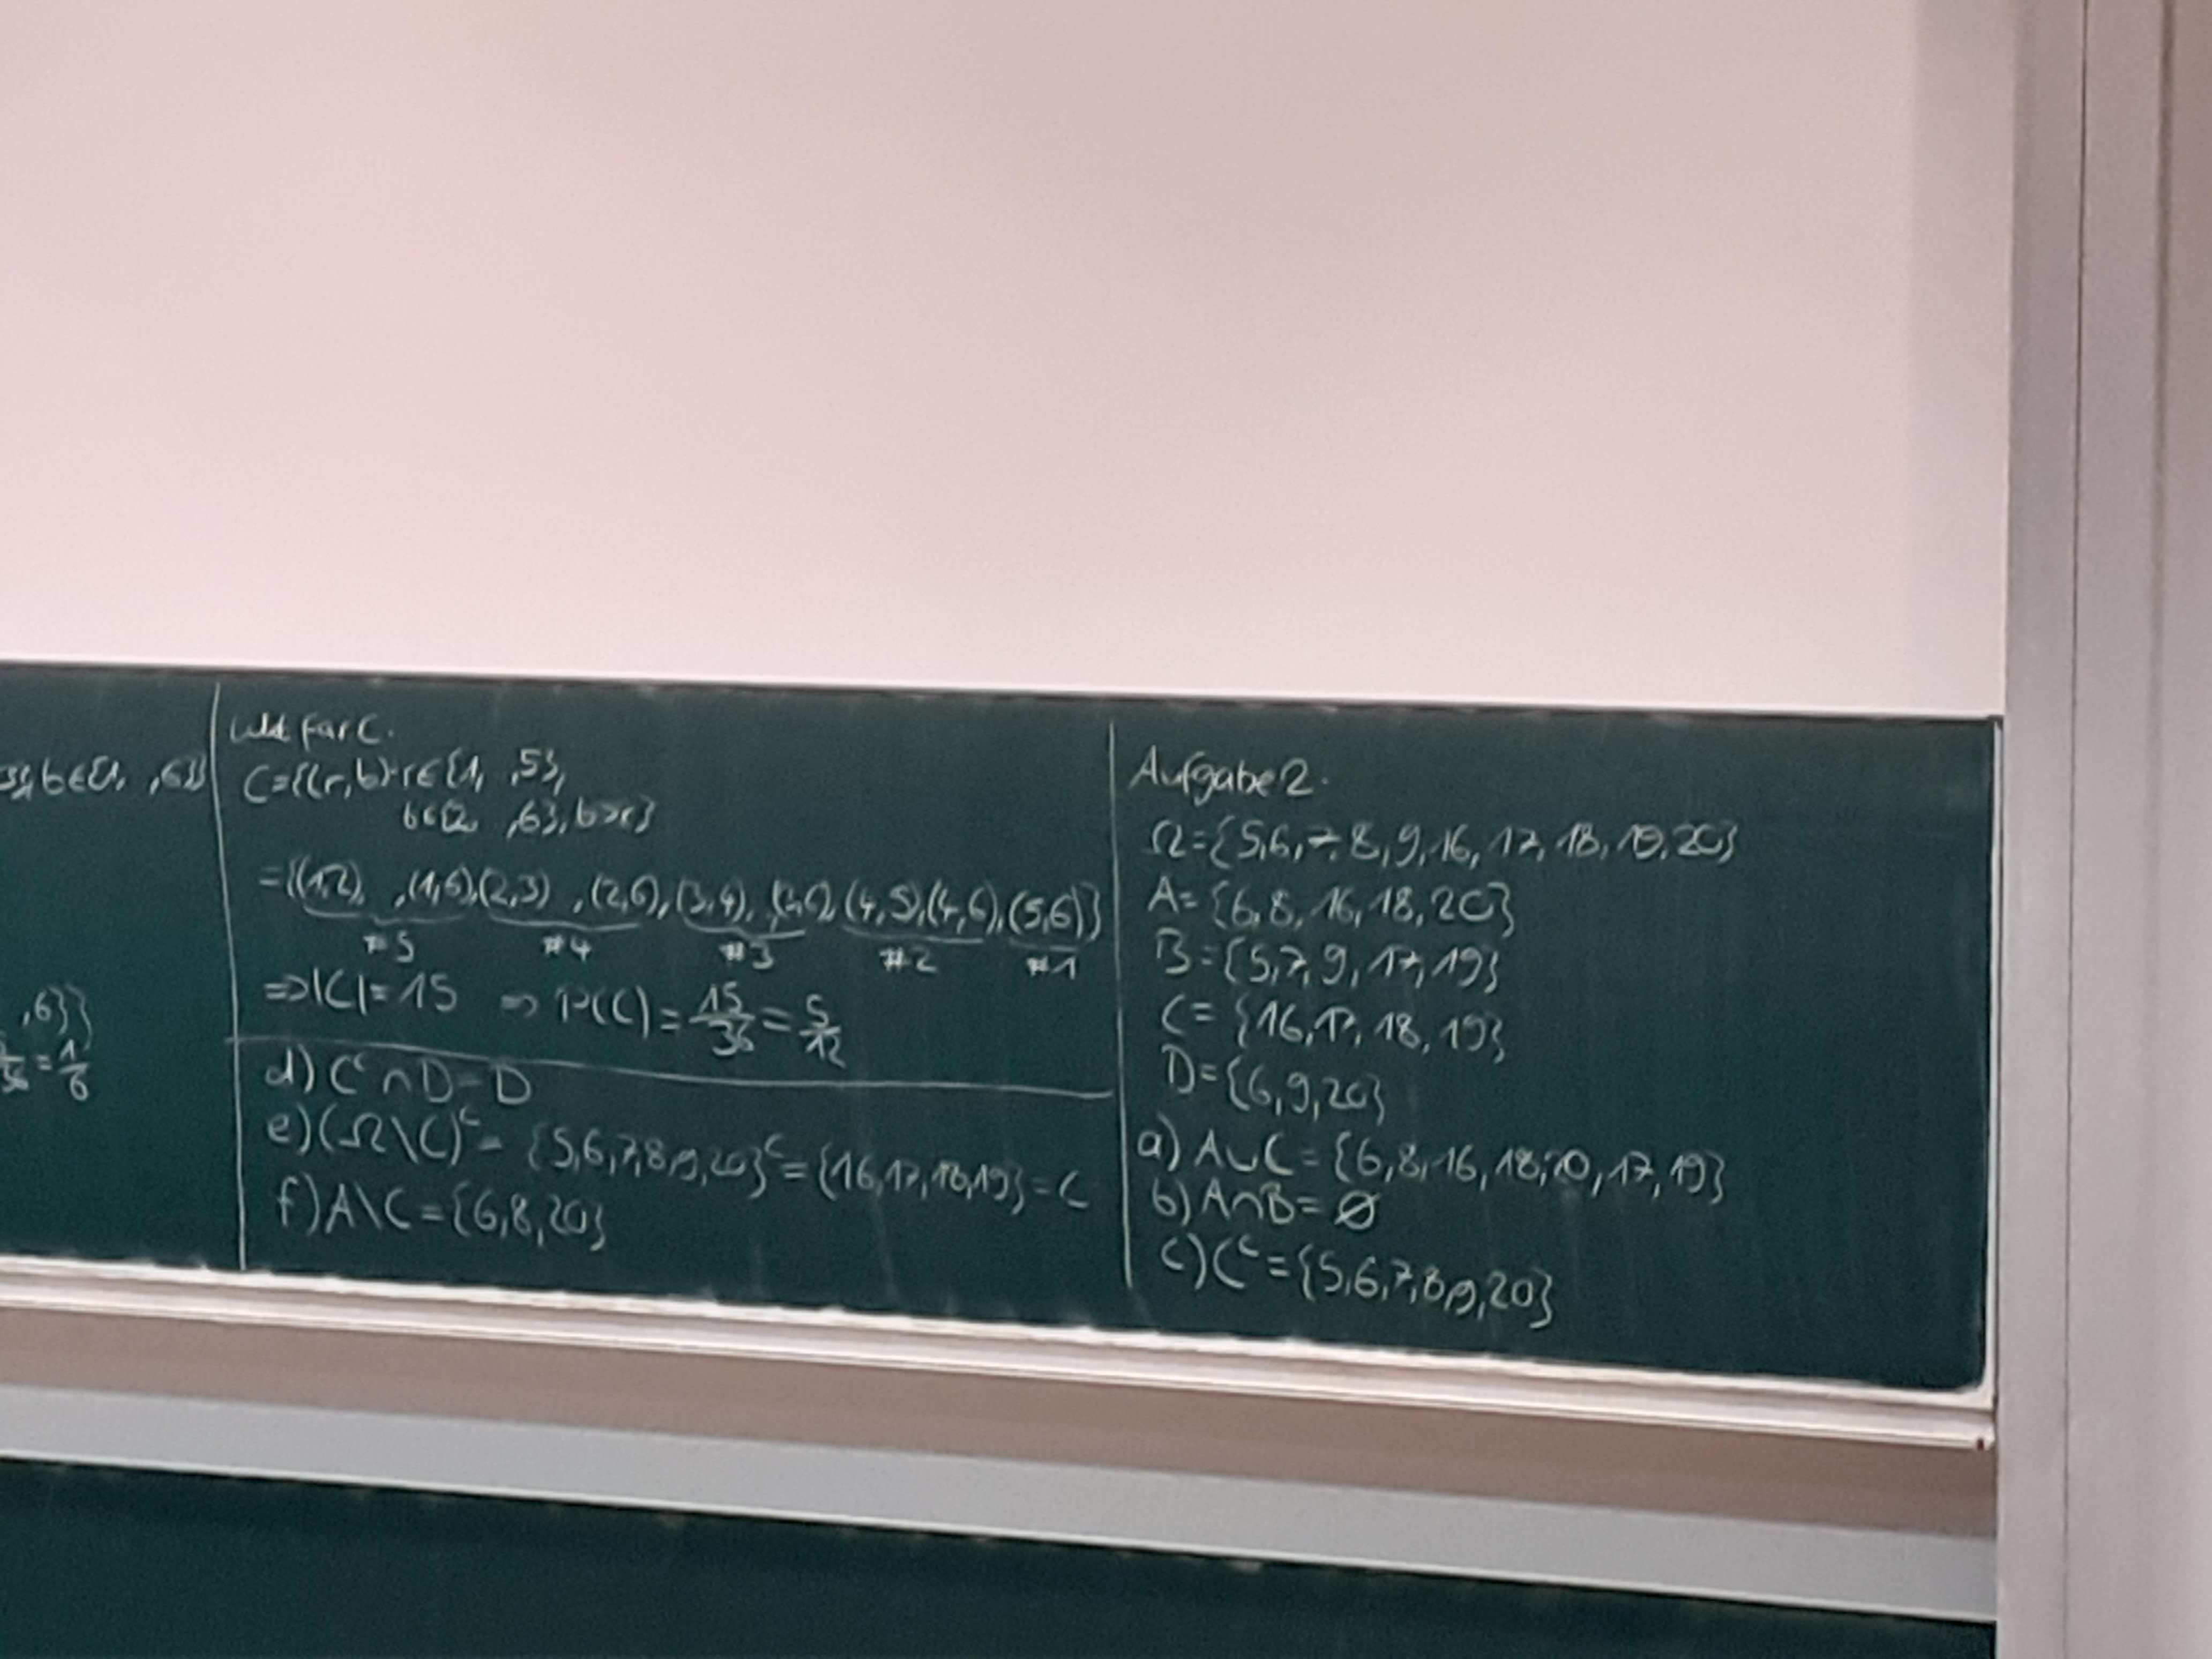 b∈{1, ,6}}
,6}}
= 1/6
C={(r,b): r∈{1, ,5},
b∈{2, ,6}, b>r}
={(1,2), ,(1,6),(2,3) ,(2,6),(3,4), ,(4,5),(4,6),(5,6)}
#5 #4 #3 #2 #1
=>|C|=15 => P(C)=15/36=5/12
d) Cᶜ∩D=D
e) (Ω\C)ᶜ= {5,6,7,8,9,20}ᶜ={16,17,18,19}=C
f) A\C={6,8,20}
Aufgabe 2.
Ω={5,6,7,8,9,16,17,18,19,20}
A={6,8,16,18,20}
B={5,7,9,17,19}
C={16,17,18,19}
D={6,9,20}
a) A∪C={6,8,16,18,20,17,19}
b) A∩B=Ø
c) Cᶜ={5,6,7,8,9,20}